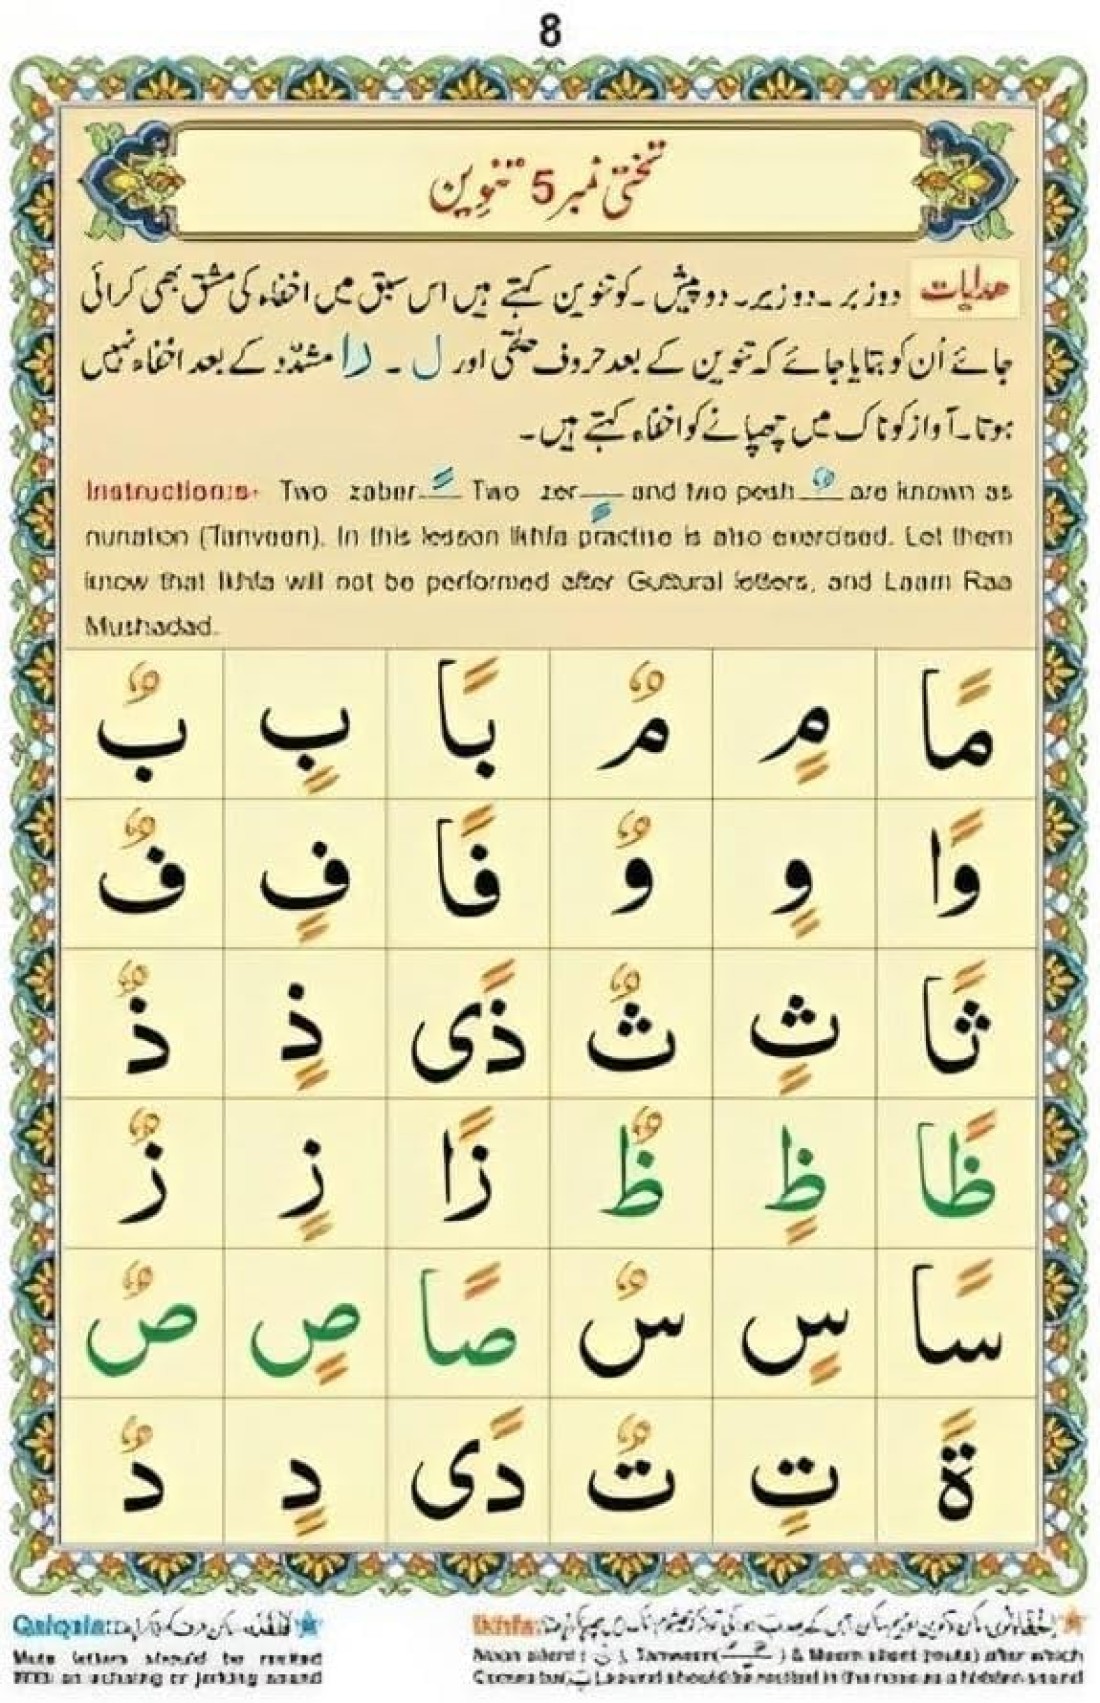 8
تختی نمبر 5 تنوین
ھدایات دو زبر ۔ دو زیر ۔ دو پیش ۔ کو تنوین کہتے ہیں اس سبق میں اخفاء کی مشق بھی کرائی
جائے اُن کو بتایا جائے کہ تنوین کے بعد حروف حلقی اور ل ۔ را مشدّد کے بعد اخفاء نہیں
ہوتا۔ آواز کو ناک میں چھپانے کو اخفاء کہتے ہیں۔
Instructions: Two zabar ـً Two zer ـٍ and two pesh ـٌ are known as
nunation (Tanveen). In this lesson Ikhfa practise is also exercised. Let them
know that Ikhfa will not be performed after Guttural letters, and Laam Raa
Mushadad.
مًا مٍ مٌ بًا بٍ بٌ
وًا وٍ وٌ فًا فٍ فٌ
ثًا ثٍ ثٌ ذًى ذٍ ذٌ
ظًا ظٍ ظٌ زًا زٍ زٌ
سًا سٍ سٌ صًا صٍ صٌ
ةً تٍ تٌ دًى دٍ دٌ
Qalqala:
Mute letters should be recited
with an echoing or jerking sound
Ikhfa:
Noon silent (نْ), Tanween ( ) & Meem silent (mute) after which
Comes baa ب sound should be recited in the nose as a hidden sound